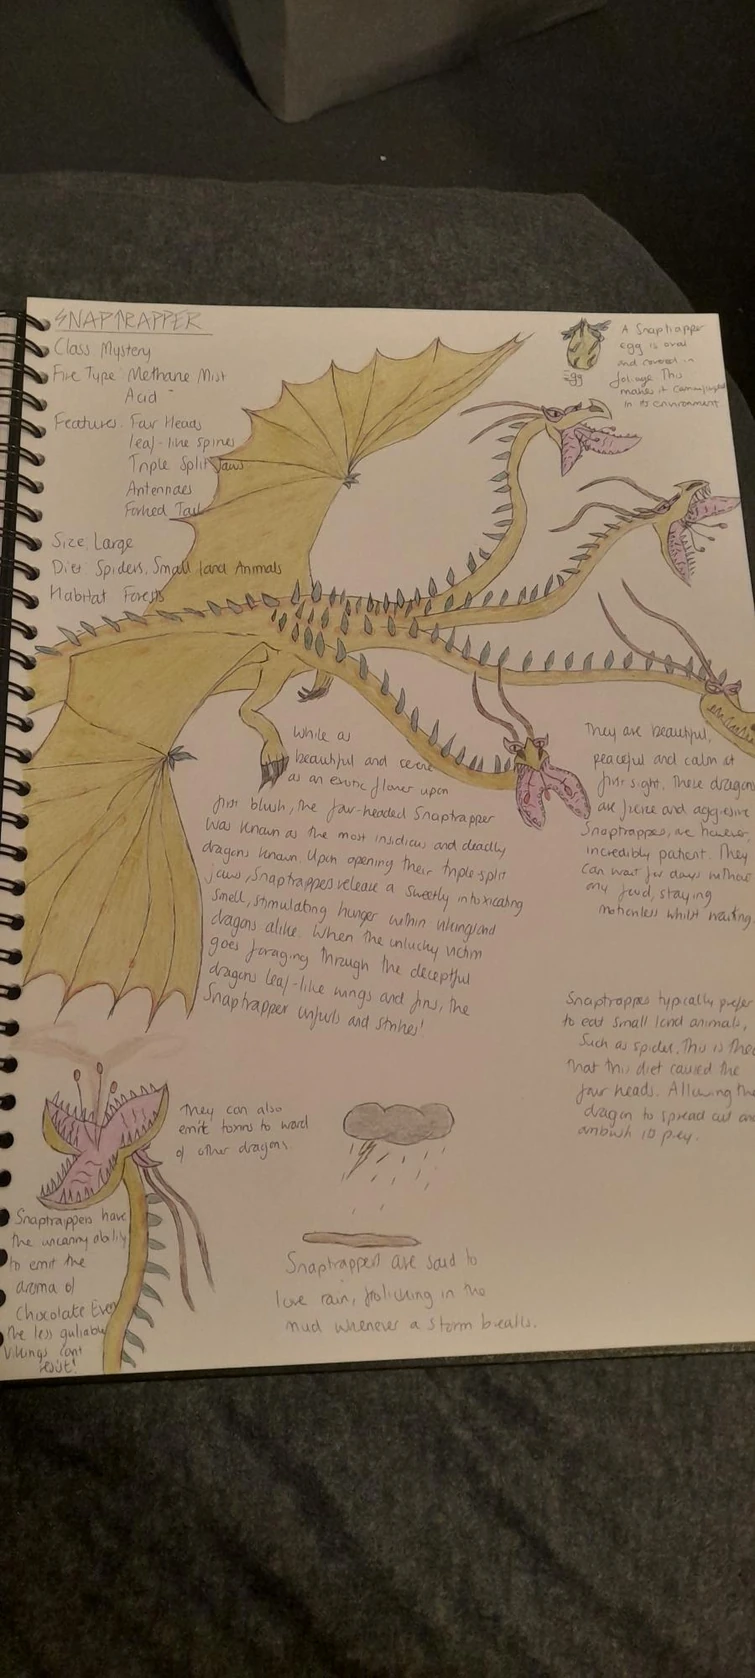 SNAPTRAPPER
Class Mystery
Fire Type: Methane Mist
Acid
Features. Four Heads
leaf-like spines
Triple Split Jaws
Antennaes
Forked Tail
Size. Large
Diet Spiders. Small land Animals
Habitat Forests
Egg
A Snaptrapper
egg is oval
and covered in
foliage. This
makes it camouflaged
in its environment
While as
beautiful and serene
as an exotic flower upon
first blush, the four-headed Snaptrapper
was known as the most insidious and deadly
dragons known. Upon opening their triple-split
jaws, Snaptrappers release a sweetly intoxicating
smell, stimulating hunger within vikings and
dragons alike. When the unlucky victim
goes foraging through the deceptful
dragons leaf-like wings and fins, the
Snaptrapper unfurls and strikes!
They are beautiful,
peaceful and calm at
first sight. These dragons
are fierce and aggressive
Snaptrappers, are however,
incredibly patient. They
can wait for days without
any food, staying
motionless whilst waiting.
Snaptrappers typically prefer
to eat small land animals,
Such as spider. This is
that this diet caused the
four heads. Allowing the
dragon to spread out and
ambush its prey.
They can also
emit toxins to ward
of other dragons.
Snaptrappers have
the uncanny ability
to emit the
aroma of
Chocolate Even
the less gullable
Vikings cant
resist!
Snaptrappers are said to
love rain, frolicking in the
mud whenever a storm breaks.